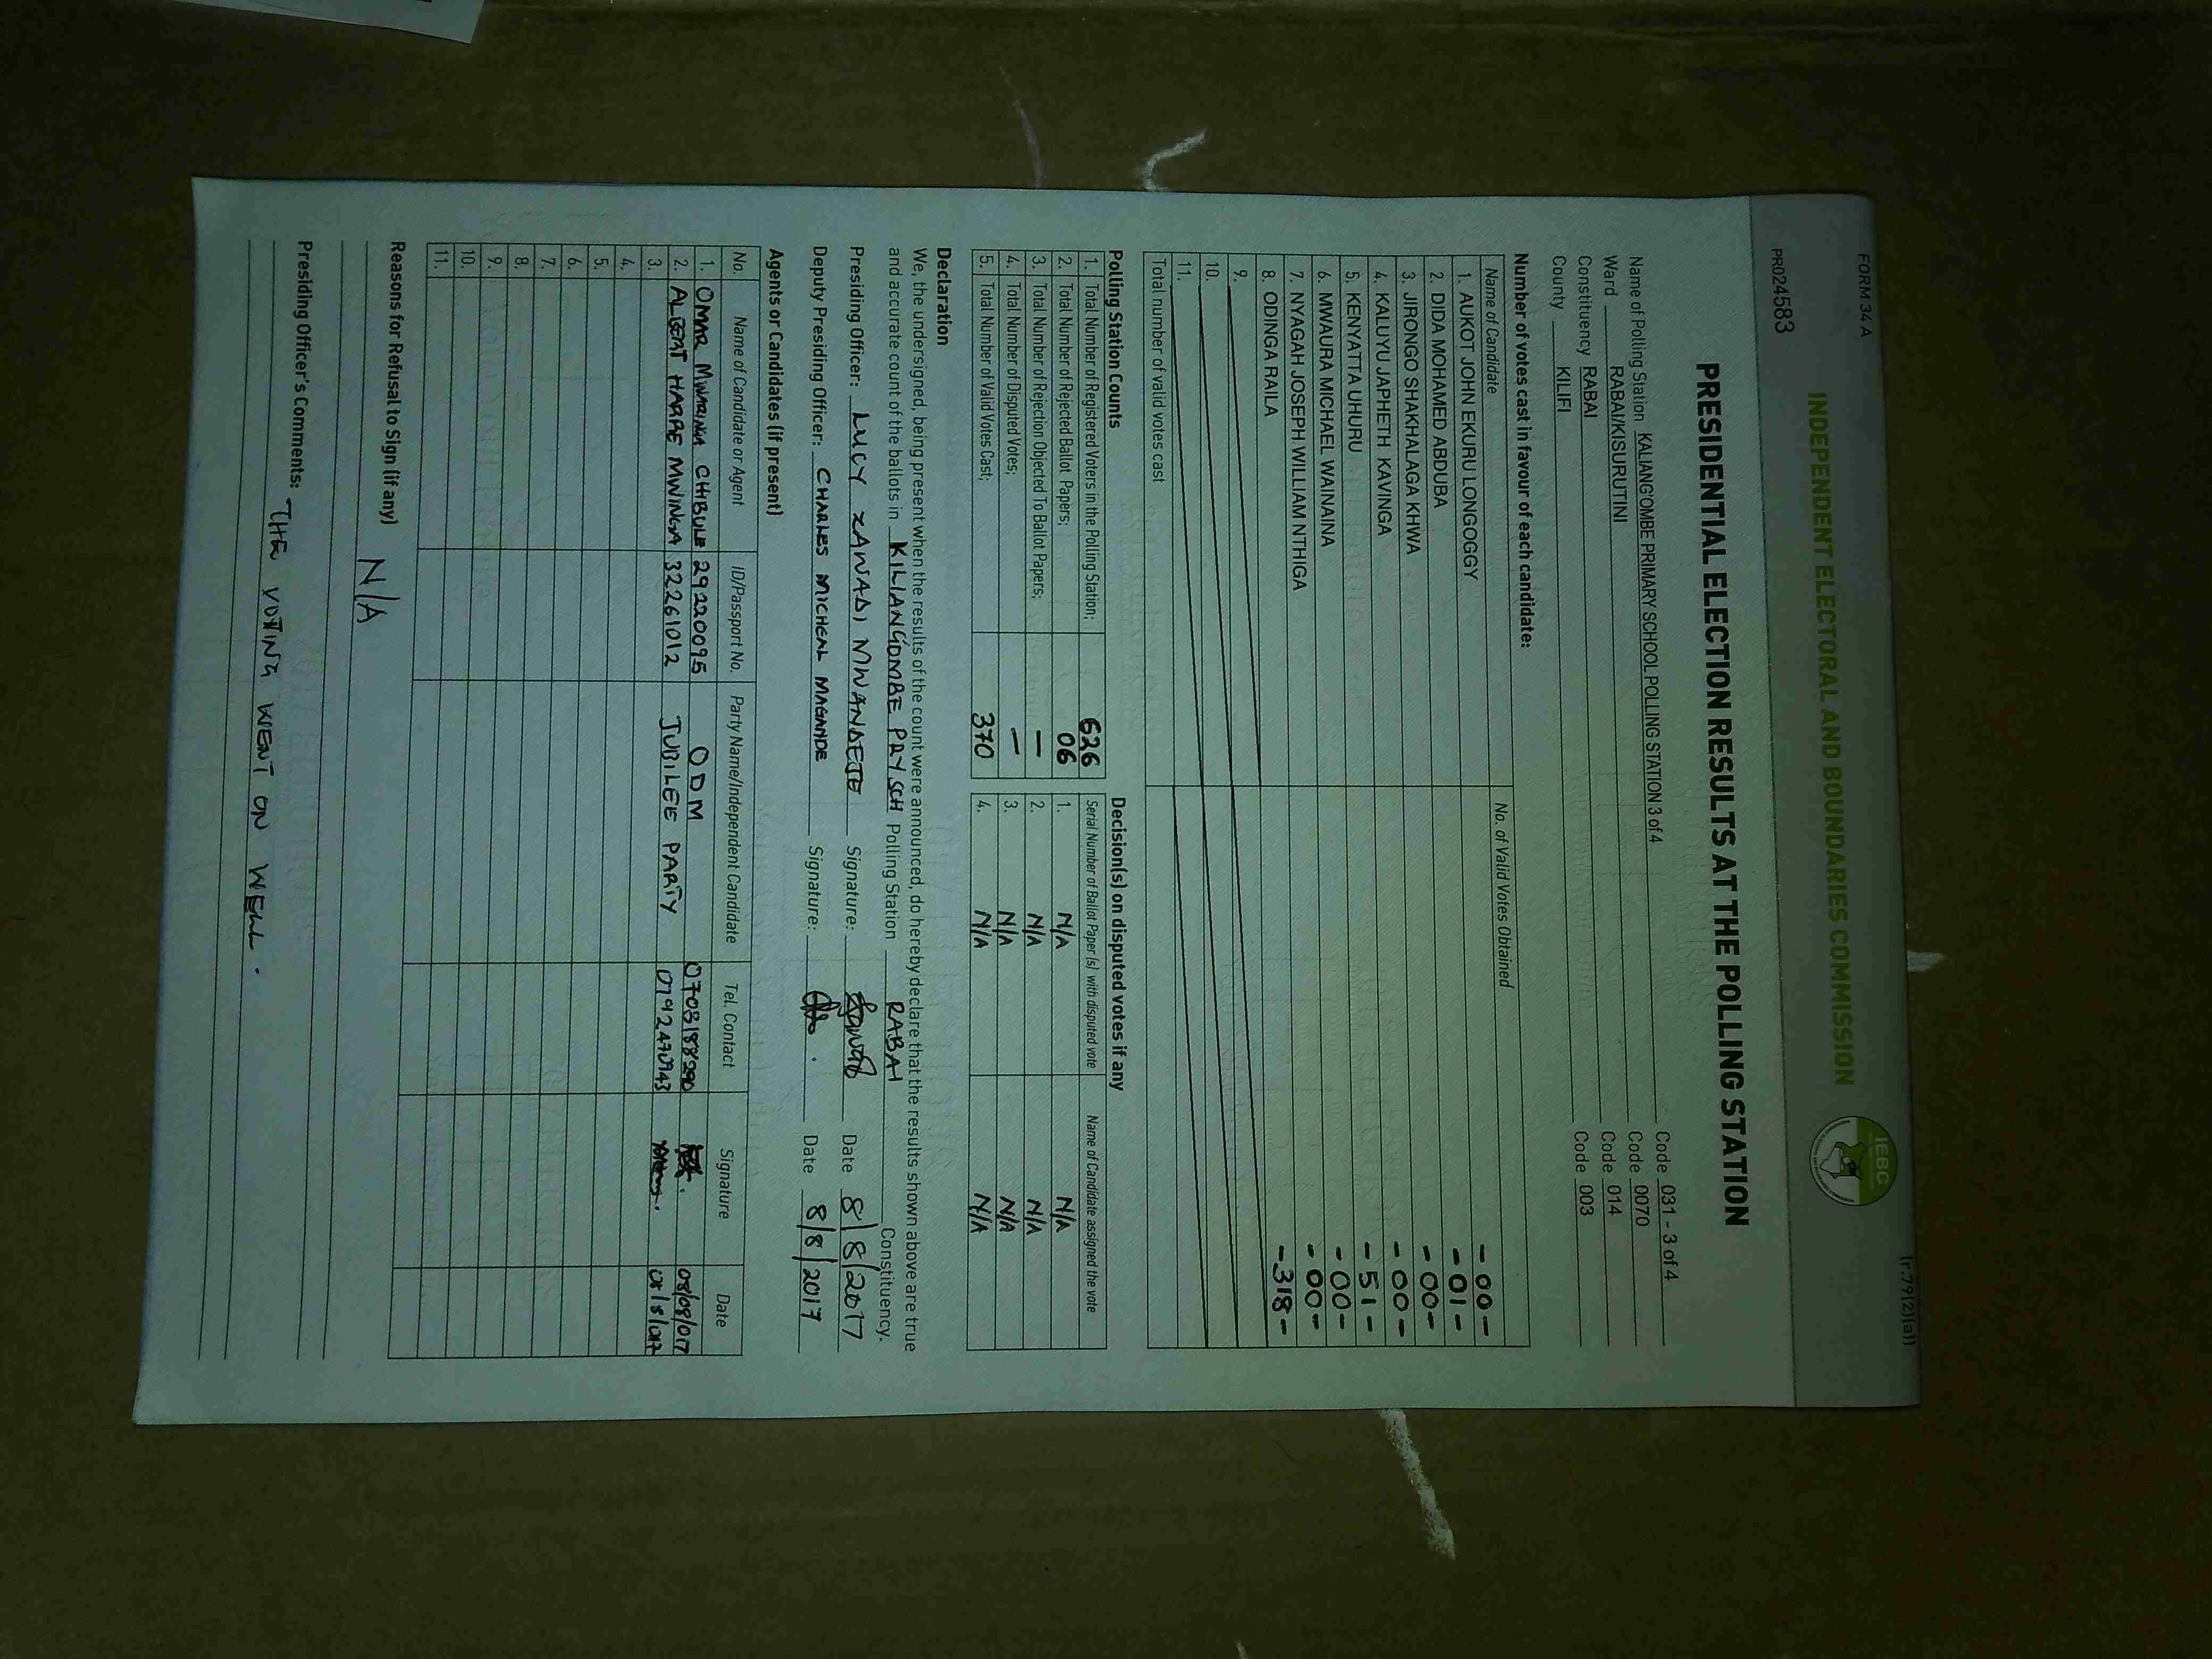 FORM 34 A
(r.79(2)(a))
INDEPENDENT ELECTORAL AND BOUNDARIES COMMISSION
IEBC
PR024583
PRESIDENTIAL ELECTION RESULTS AT THE POLLING STATION
Name of Polling Station KALIANG'OMBE PRIMARY SCHOOL POLLING STATION 3 of 4 Code 031 - 3 of 4
Ward RABAI/KISURUTINI Code 0070
Constituency RABAI Code 014
County KILIFI Code 003
Number of votes cast in favour of each candidate:
Name of Candidate No. of Valid Votes Obtained
1. AUKOT JOHN EKURU LONGOGGY - 00 -
2. DIDA MOHAMED ABDUBA - 01 -
3. JIRONGO SHAKHALAGA KHWA - 00 -
4. KALUYU JAPHETH KAVINGA - 00 -
5. KENYATTA UHURU - 51 -
6. MWAURA MICHAEL WAINAINA - 00 -
7. NYAGAH JOSEPH WILLIAM NTHIGA - 00 -
8. ODINGA RAILA - 318 -
9.
10.
11.
Total number of valid votes cast
Polling Station Counts
1. Total Number of Registered Voters in the Polling Station; 626
2. Total Number of Rejected Ballot Papers; 06
3. Total Number of Rejection Objected To Ballot Papers; —
4. Total Number of Disputed Votes; —
5. Total Number of Valid Votes Cast; 370
Decision(s) on disputed votes if any
Serial Number of Ballot Paper (s) with disputed vote Name of Candidate assigned the vote
1. N/A N/A
2. N/A N/A
3. N/A N/A
4. N/A N/A
Declaration
We, the undersigned, being present when the results of the count were announced, do hereby declare that the results shown above are true
and accurate count of the ballots in KILIANGOMBE PRY SCH Polling Station RABAI Constituency.
Presiding Officer: LUCY ZAWADI MWANDEJE Signature: Date 8/8/2017
Deputy Presiding Officer: CHARLES MICHEAL MAGANDE Signature: Date 8/8/2017
Agents or Candidates (if present)
No. Name of Candidate or Agent ID/Passport No. Party Name/Independent Candidate Tel. Contact Signature Date
1. OMAR MWARINGA CHIBULE 29220095 ODM 0703188290 08/08/017
2. ALBERT HARRE MWINGA 32261012 JUBILEE PARTY
3.
4.
5.
6.
7.
8.
9.
10.
11.
Reasons for Refusal to Sign (if any) N/A
Presiding Officer's Comments: THE VOTING WENT ON WELL.